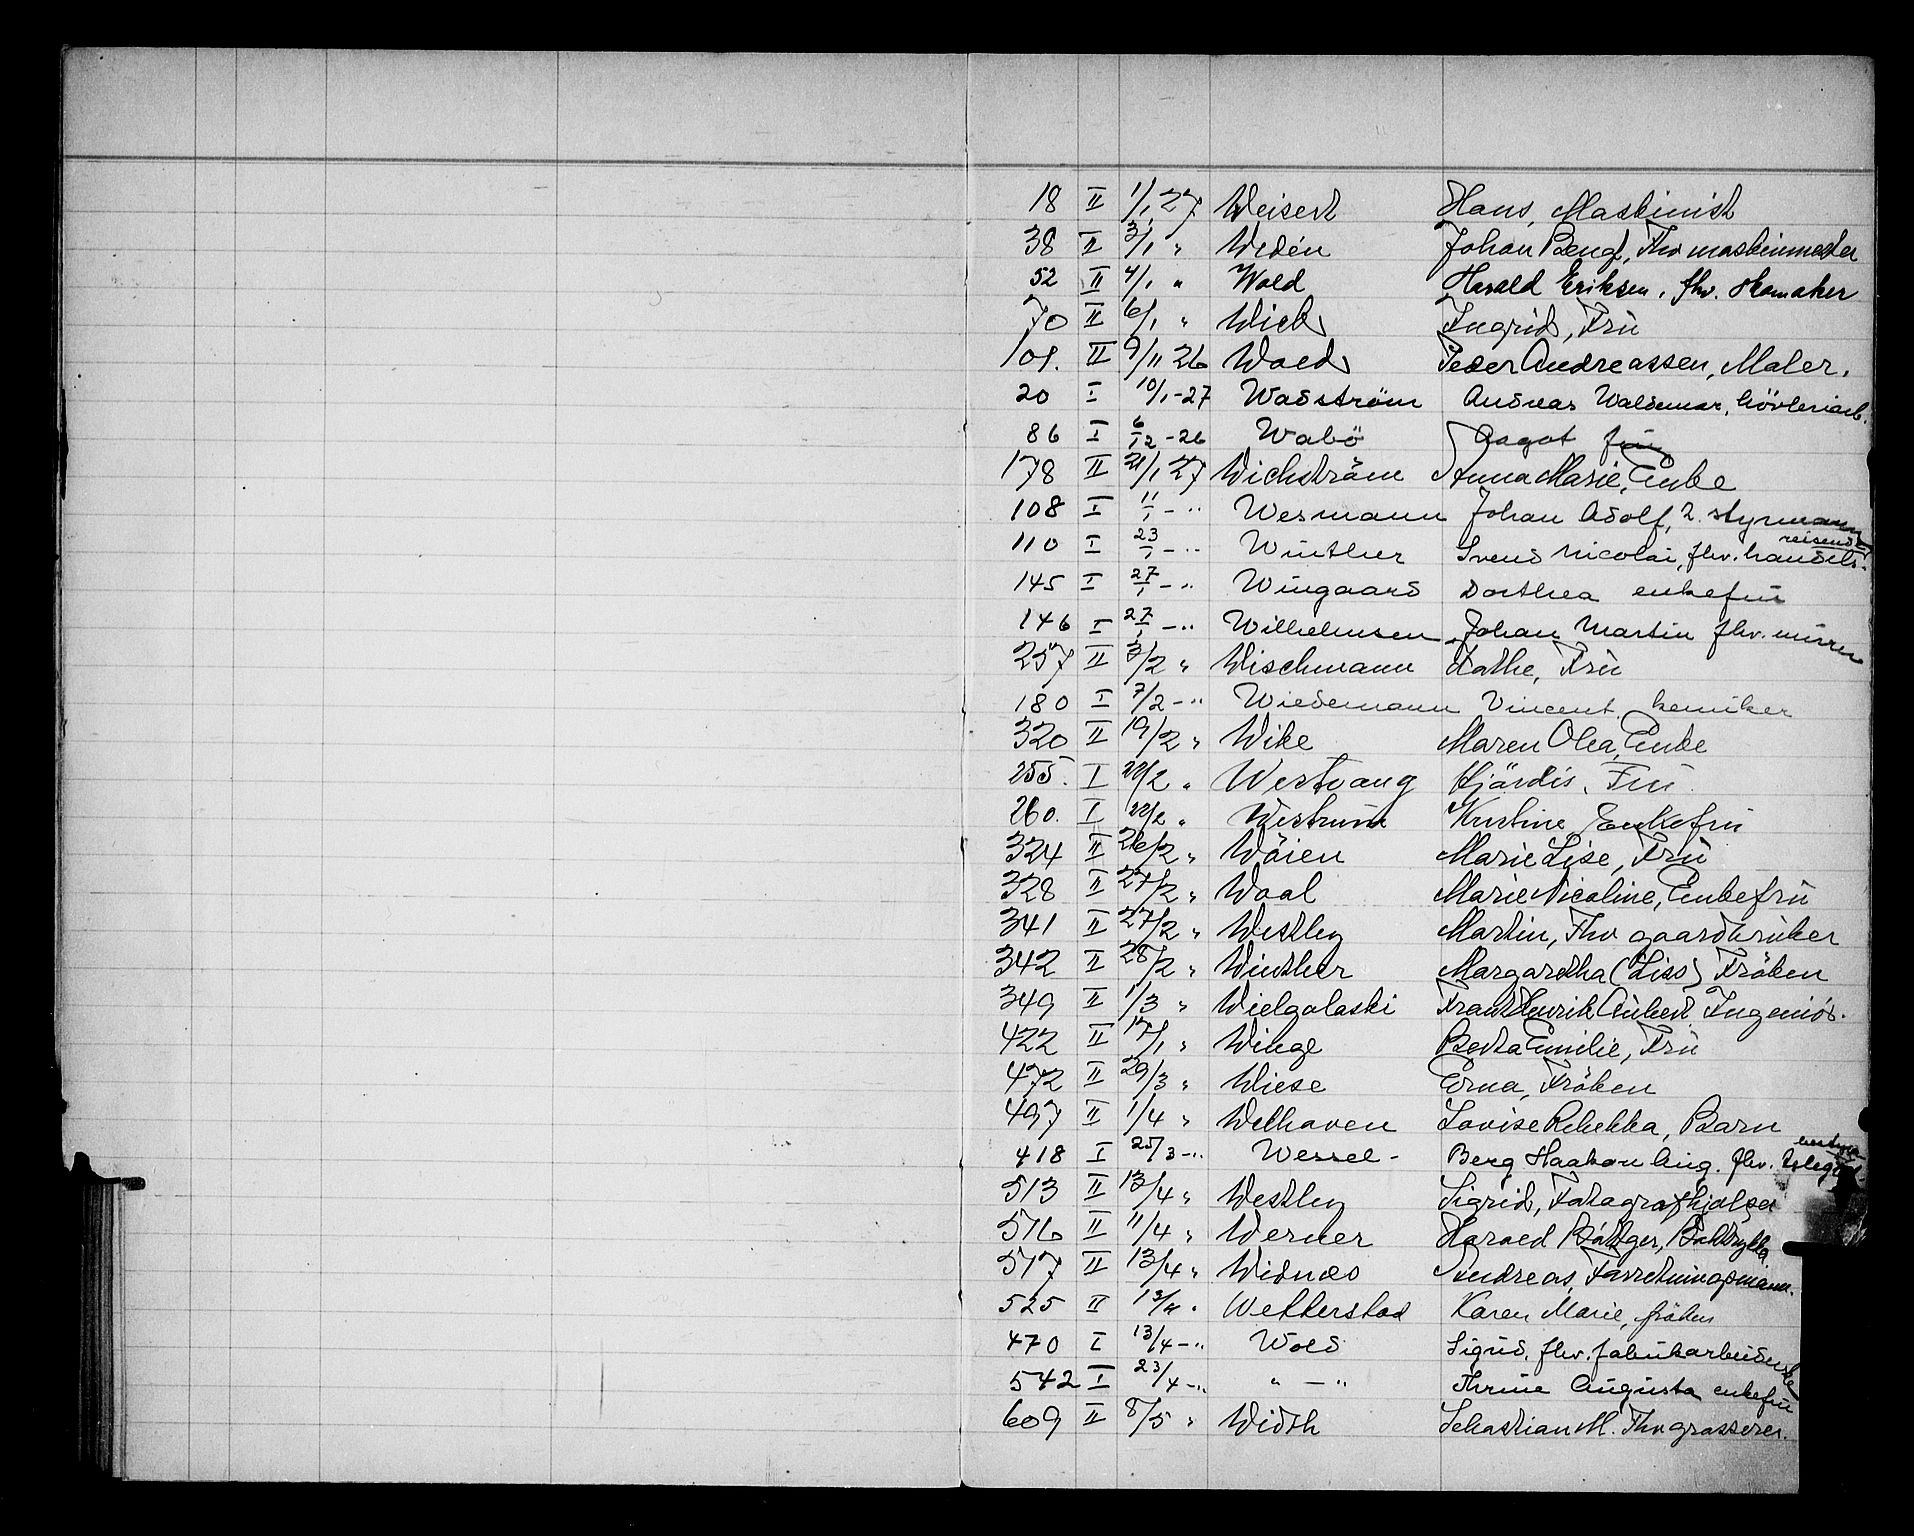 18 II 1/1 27 Weisert Hans, Maskinist
38 II 3/1 " Wedén Johan Bengt, Fhv maskinmester
52 II 4/1 " Wold Harald Eriksen, fhv. Skomaker
70 II 6/1 " Wick Ingrid, Frü
101. II 9/11 26 Wold Peder Andreassen, Maler.
20 I 10/1-27 Wadström Andreas Waldemar, hövleriarb.
86 I 6/12-26 Wabö Aagot früe
178 II 21/1 27 Wichström Anna Marie, Enke
108 I 11/1 - " Wesmann Johan Adolf, 2. styrmann
110 I 23/1 - " Winther Svend Nicolai, fhv. handels-reisende
145 I 27/1 - " Wingaard Dorthea enkefrü
146 I 27/1 - " Wilhelmsen Johan Martin fhv. mürer
257 II 3/2 " Wischmann Käthe, Frü
180 I 7/2 - " Wiedemann Vincent. kemiker
320 II 19/2 " Wike Maren Olea, Enke
255. I 22/2 " Westvang Hjördis, Frü
260. I 22/2 " Westrum Kristine Enkefrü
324 II 26/2 " Wöien Marie Lise, Frü
328 II 27/2 " Waal Marie Nicoline, Enkefrü
341 II 27/2 " Westley Martin, Fhv gaardbrüker
342 II 28/2 " Winther Margaretha (Liss) Fröken
349 II 1/3 " Wielgolaski Frantz Henrik Aübert Ingeniör.
422 II 17/1 " Winge Berta Emilie, Frü
472 II 29/3 " Wiese Erna, Fröken
497 II 1/4 " Welhaven Lovise Rebekka, Barn
418 I 25/3 - " Wessel - Berg Haakon Aug. fhv. telegr. bestyrer
513 II 13/4 " Westley Sigrid, Fotografhjelper
516 II 11/4 " Werner Harald Böttger, Boktrykker
517 II 13/4 " Widnæs Andreas, Forretningsmann.
525 II 13/4 " Wetterstad Karen Marie, fröken
470 I 13/4 - " Wold Sigrid. fhv. fabrikarbeiderske
542 I 23/4 - " " - " Thrine Augusta enkefrü
609 II 8/5 " Width Sebastian M. Fhv grosserer.